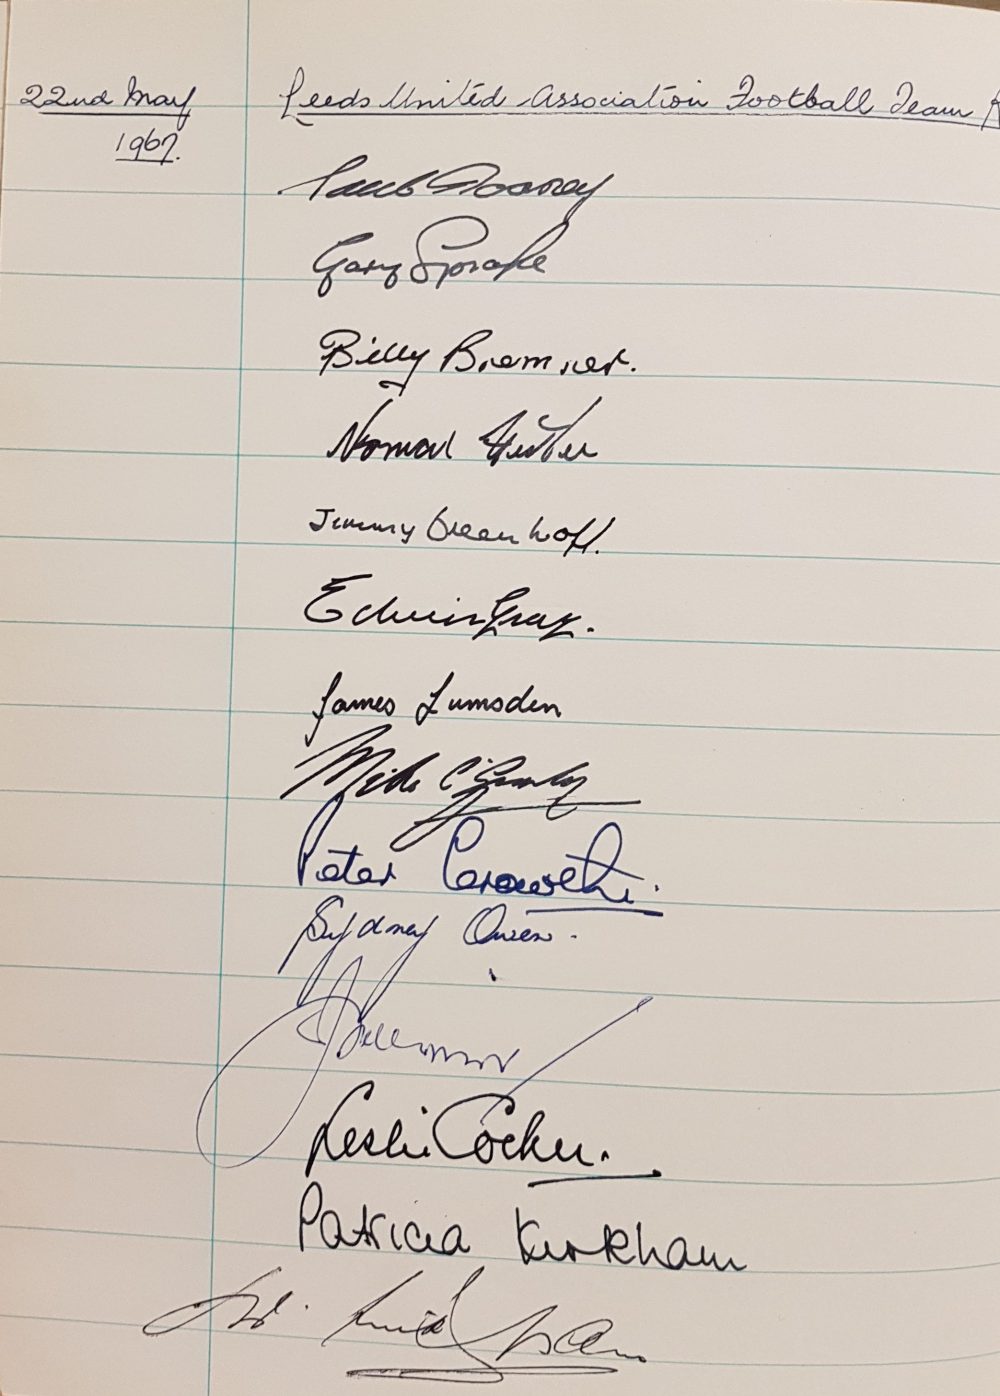 22nd May Leeds United Association Football Team
1967.
Gary Sprake
Billy Bremner.
Norman Hunter
Jimmy Greenhoff.
Edwin Gray.
James Lumsden
Mike O'Grady
Peter
Sydney Owen.
Leslie Cocker.
Patricia Kirkham